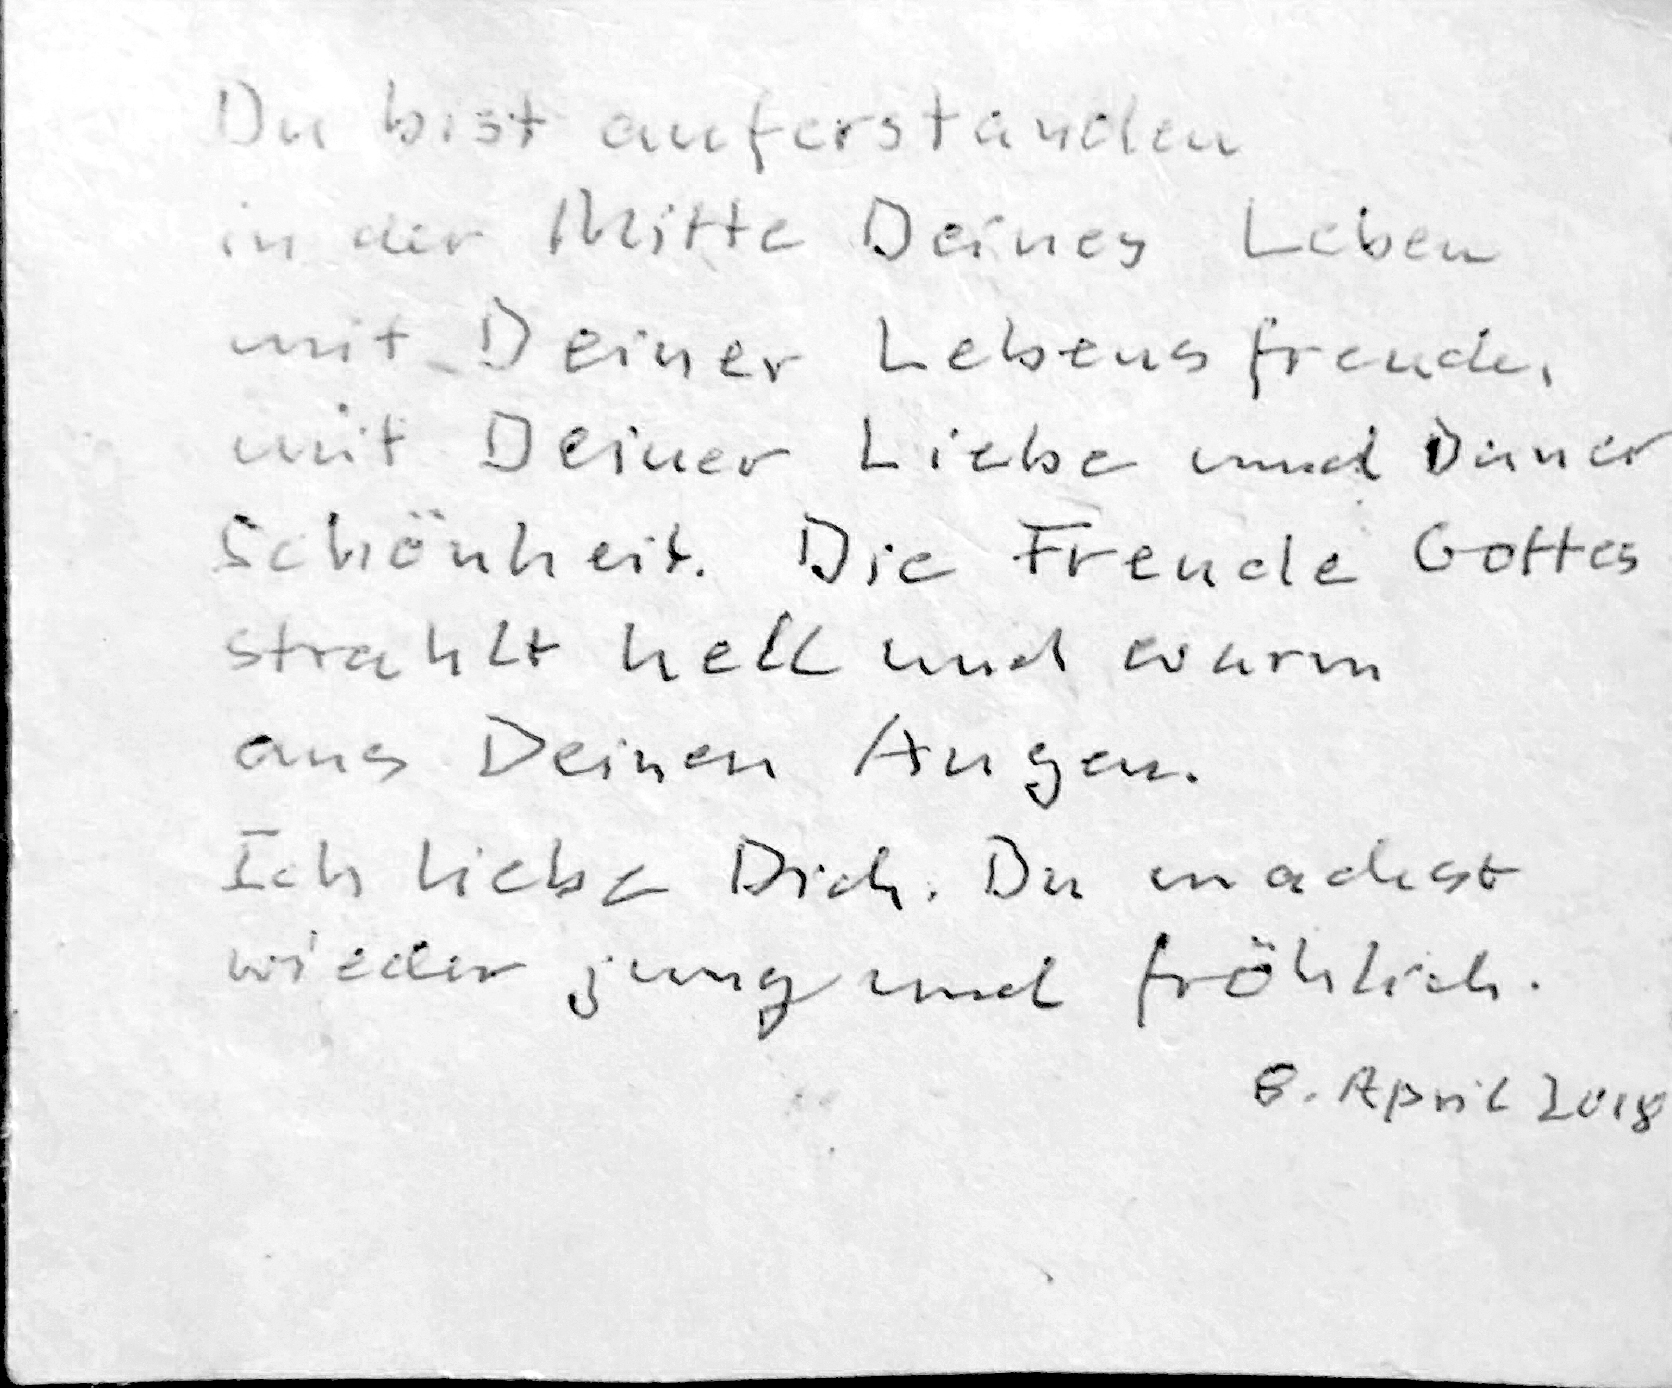 Du bist auferstanden
in der Mitte Deines Leben
mit Deiner Lebensfreude,
mit Deiner Liebe und Deiner
Schönheit. Die Freude Gottes
strahlt hell und warm
aus Deinen Augen.
Ich liebe Dich. Du machst
wieder jung und fröhlich.
8. April 2018